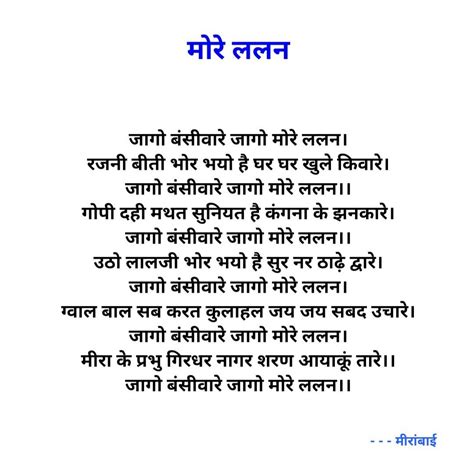 मोरे ललन
जागो बंसीवारे जागो मोरे ललन।
रजनी बीती भोर भयो है घर घर खुले किवारे।
जागो बंसीवारे जागो मोरे ललन।।
गोपी दही मथत सुनियत है कंगना के झनकारे।
जागो बंसीवारे जागो मोरे ललन।।
उठो लालजी भोर भयो है सुर नर ठाढ़े द्वारे।
जागो बंसीवारे जागो मोरे ललन।
ग्वाल बाल सब करत कुलाहल जय जय सबद उचारे।
जागो बंसीवारे जागो मोरे ललन।
मीरा के प्रभु गिरधर नागर शरण आयाकूं तारे।।
जागो बंसीवारे जागो मोरे ललन।।
- - - मीरांबाई